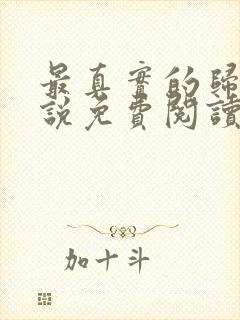 最真實的歸
說免費閱讀
加十斗